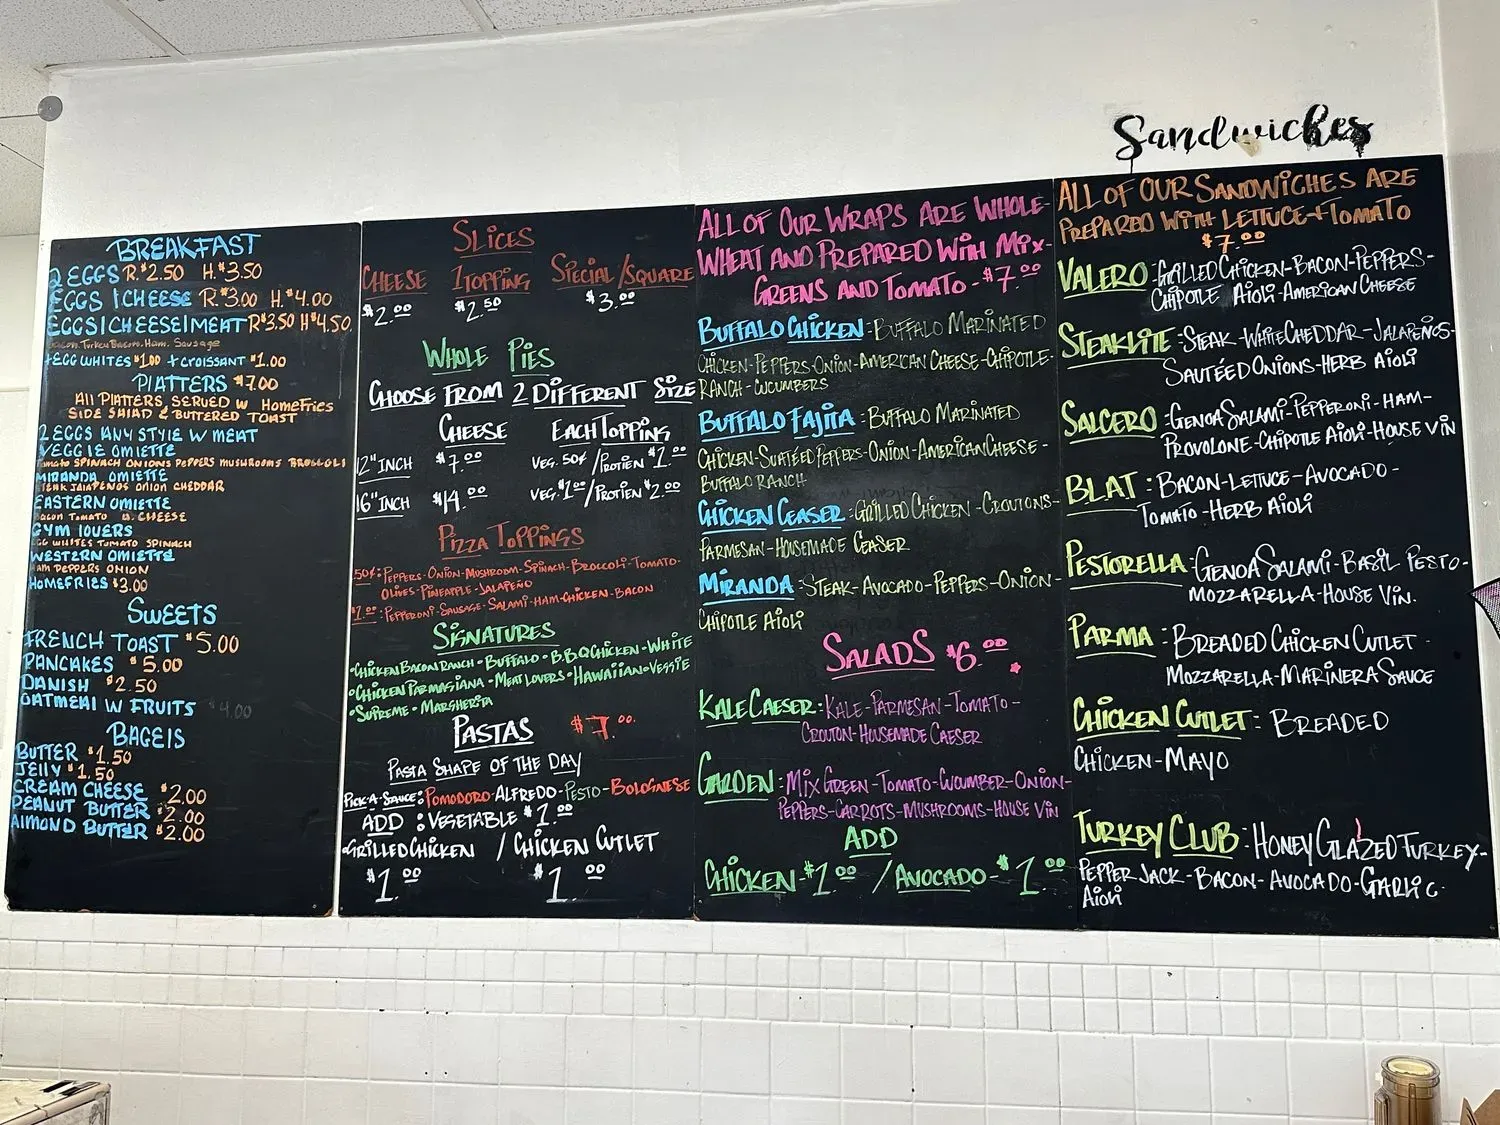 Sandwiches
BREAKFAST
2 EGGS R.$2.50 H.$3.50
EGGS | CHEESE R.$3.00 H.$4.00
EGGS | CHEESE | MEAT R$3.50 H$4.50
Bacon, Turkey Bacon, Ham, Sausage
+EGG WHITES $1.00 +CROISSANT $1.00
PLATTERS $7.00
All PLATTERS, SERVED W HomeFries
SIDE SALAD & BUTTERED TOAST
2 EGGS ANY STYLE W MEAT
VEGGIE OMLETTE
Tomato SPINACH ONIONS PePPERS MUSHROOMS BROCCOLI
MIRANDA OMLETTE
STEAK JALAPENOS ONION CHEDDAR
EASTERN OMLETTE
Bacon Tomato CHEESE
GYM LOVERS
EGG WHITES TOMATO SPINACH
WESTERN OMLETTE
HAM PEPPERS ONION
HOMEFRIES $3.00
SWEETS
FRENCH TOAST $5.00
PANCAKES $5.00
DANISH $2.50
OATMEAL W FRUITS $4.00
BAGELS
BUTTER $1.50
JELLY $1.50
CREAM CHEESE $2.00
PEANUT BUTTER $2.00
ALMOND BUTTER $2.00
SLICES
CHEESE 1 TOPPING SPECIAL/SQUARE
$2.00 $2.50 $3.00
WHOLE PIES
CHOOSE FROM 2 DIFFERENT SIZE
CHEESE EACH TOPPING
12" INCH $7.00 VEG. 50¢/PROTIEN $1.00
16" INCH $14.00 VEG. $1.00/PROTIEN $2.00
PIZZA TOPPINGS
.50¢: PEPPERS-ONION-MUSHROOM-SPINACH-BROCCOLI-TOMATO-
OLIVES-PINEAPPLE-JALAPEÑO
$1.00: PEPPERONI-SAUSAGE-SALAMI-HAM-CHICKEN-BACON
SIGNATURES
•CHICKEN BACON RANCH•BUFFALO•B.B.Q CHICKEN•WHITE
•CHICKEN PARMASIANA•MEAT LOVERS•HAWAIIAN•VEGGIE
•SUPREME•MARGHERITA
PASTAS $7.00
PASTA SHAPE OF THE DAY
PICK-A-SAUCE: POMODORO-ALFREDO-PESTO-BOLOGNESE
ADD: VEGETABLE $1.00
•GRILLED CHICKEN / CHICKEN CUTLET
$1.00 $1.00
ALL OF OUR WRAPS ARE WHOLE-
WHEAT AND PREPARED WITH MIX-
GREENS AND TOMATO-$7.00
BUFFALO CHICKEN: BUFFALO MARINATED
CHICKEN-PEPPERS-ONION-AMERICAN CHEESE-CHIPOTLE-
RANCH-CUCUMBERS
BUFFALO FAJITA-BUFFALO MARINATED
CHICKEN-SUATÉED PEPPERS-ONION-AMERICAN CHEESE-
BUFFALO RANCH
CHICKEN CEASER: GRILLED CHICKEN-CROUTONS-
PARMESAN-HOUSEMADE CEASER
MIRANDA: STEAK-AVOCADO-PEPPERS-ONION-
CHIPOTLE AIOLI
SALADS $6.00
KALE CAESER: KALE-PARMESAN-TOMATO-
CROUTON-HOUSEMADE CAESER
GARDEN: MIX GREEN-TOMATO-CUCUMBER-ONION-
PEPPERS-CARROTS-MUSHROOMS-HOUSE VIN
ADD
CHICKEN-$1.00 / AVOCADO-$1.00
ALL OF OUR SANDWICHES ARE
PREPARED WITH LETTUCE+TOMATO
$7.00
VALERO: GRILLED CHICKEN-BACON-PEPPERS-
CHIPOTLE AIOLI-AMERICAN CHEESE
STEAKLITE-STEAK-WHITE CHEDDAR-JALAPEÑOS-
SAUTÉED ONIONS-HERB AIOLI
SALCERO: GENOA SALAMI-PEPPERONI-HAM-
PROVOLONE-CHIPOTLE AIOLI-HOUSE VIN
BLAT: BACON-LETTUCE-AVOCADO-
TOMATO-HERB AIOLI
PESTORELLA: GENOA SALAMI-BASIL PESTO-
MOZZARELLA-HOUSE VIN.
PARMA: BREADED CHICKEN CUTLET-
MOZZARELLA-MARINERA SAUCE
CHICKEN CUTLET: BREADED
CHICKEN-MAYO
TURKEY CLUB: HONEY GLAZED TURKEY-
PEPPER JACK-BACON-AVOCADO-GARLIC-
AIOLI